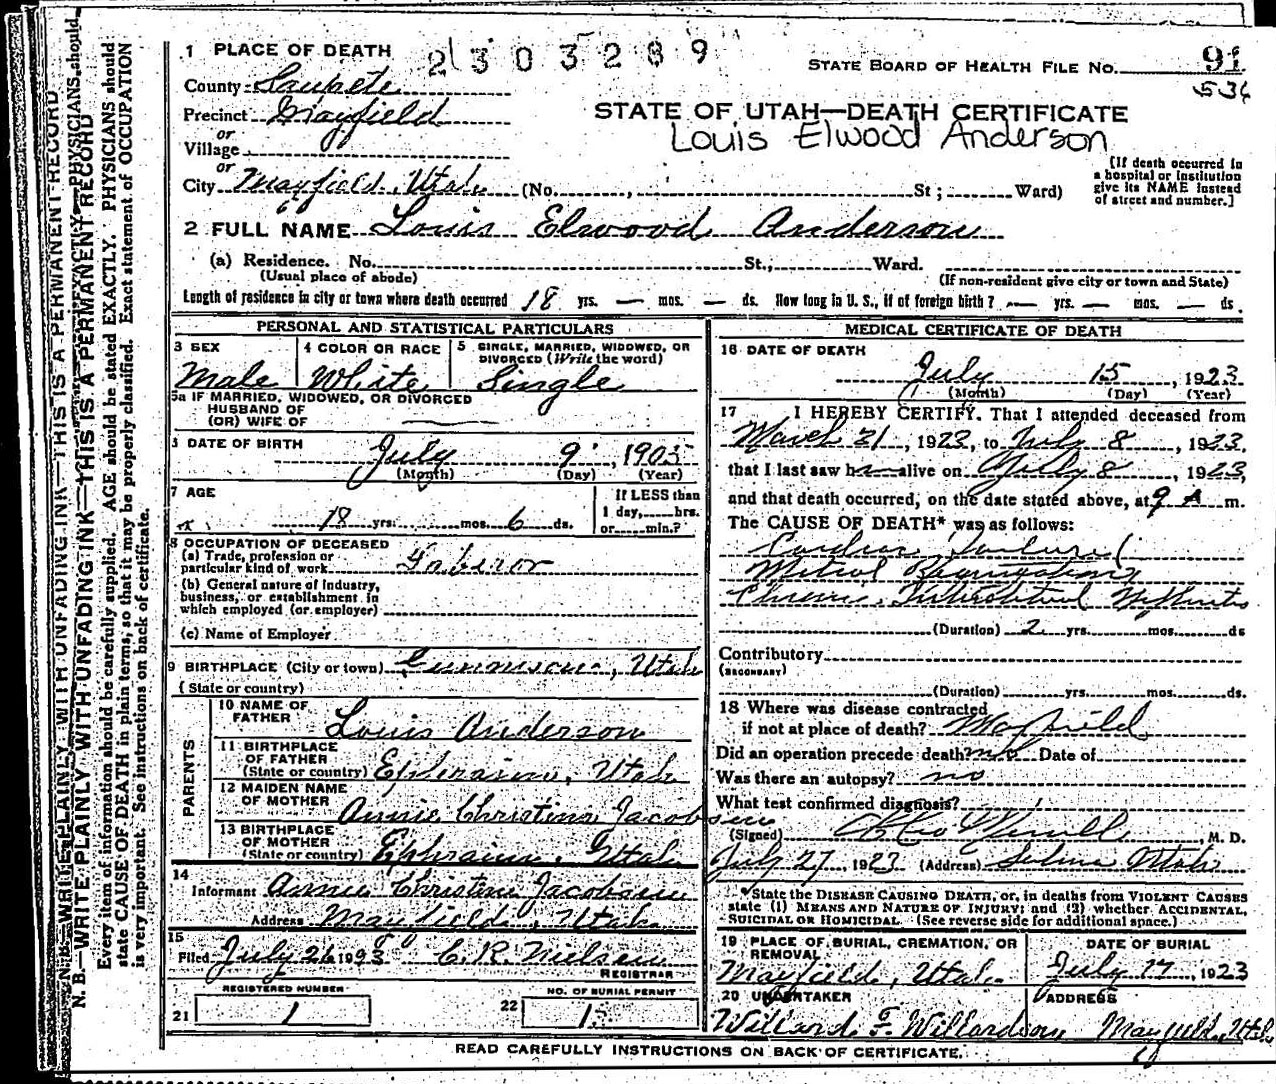 1 PLACE OF DEATH
2303289
STATE BOARD OF HEALTH FILE NO. 91
536
County Sanpete
Precinct Mayfield
or
Village
or
City Mayfield, Utah (No. St; Ward)
STATE OF UTAH—DEATH CERTIFICATE
Louis Elwood Anderson
[If death occurred in
a hospital or institution
give its NAME instead
of street and number.]
2 FULL NAME Louis Elwood Anderson
(a) Residence. No. St., Ward.
(Usual place of abode) (If non-resident give city or town and State)
Length of residence in city or town where death occurred 18 yrs. — mos. — ds. How long in U. S., if of foreign birth? — yrs. — mos. — ds.
PERSONAL AND STATISTICAL PARTICULARS
3 SEX
Male
4 COLOR OR RACE
White
5 SINGLE, MARRIED, WIDOWED, OR
DIVORCED (Write the word)
Single
5a IF MARRIED, WIDOWED, OR DIVORCED
HUSBAND OF
(OR) WIFE OF
DATE OF BIRTH
July 9, 1905
(Month) (Day) (Year)
7 AGE
18 yrs. mos. 6 ds.
If LESS than
1 day, hrs.
or min.?
8 OCCUPATION OF DECEASED
(a) Trade, profession or
particular kind of work Laberor
(b) General nature of industry,
business, or establishment in
which employed (or employer)
(c) Name of Employer
9 BIRTHPLACE (City or town) Gunnison, Utah
(State or country)
PARENTS
10 NAME OF
FATHER Louis Anderson
11 BIRTHPLACE
OF FATHER
(State or country) Ephraim, Utah
12 MAIDEN NAME
OF MOTHER Annie Christina Jacobsen
13 BIRTHPLACE
OF MOTHER
(State or country) Ephraim, Utah
14
Informant Annie Christena Jacobsen
Address Mayfield, Utah
15
Filed July 26 1923 C. R. Nielsen
REGISTRAR
REGISTERED NUMBER
21 1
NO. OF BURIAL PERMIT
22 15
MEDICAL CERTIFICATE OF DEATH
16 DATE OF DEATH
July 15, 1923
(Month) (Day) (Year)
17 I HEREBY CERTIFY, That I attended deceased from
March 31, 1923, to July 8, 1923,
that I last saw h alive on July 8, 1923,
and that death occurred, on the date stated above, at 9 A m.
The CAUSE OF DEATH* was as follows:
Mitral
Chronic Interstitial Nephritis
(Duration) 2 yrs. mos. ds
Contributory
(SECONDARY)
(Duration) yrs. mos. ds.
18 Where was disease contracted
if not at place of death? Mayfield
Did an operation precede death? no Date of
Was there an autopsy? no
What test confirmed diagnosis?
(Signed) M. D.
July 27, 1923 (Address) Salina Utah
*State the DISEASE CAUSING DEATH, or, in deaths from VIOLENT CAUSES
state (1) MEANS AND NATURE OF INJURY; and (2) whether ACCIDENTAL,
SUICIDAL OR HOMICIDAL. (See reverse side for additional space.)
19 PLACE OF BURIAL, CREMATION, OR
REMOVAL
Mayfield, Utah
DATE OF BURIAL
July 17, 1923
20 UNDERTAKER
Willard F. Willardson
ADDRESS
Mayfield, Utah
READ CAREFULLY INSTRUCTIONS ON BACK OF CERTIFICATE.
N. B.—WRITE PLAINLY WITH UNFADING INK—THIS IS A PERMANENT RECORD
Every item of information should be carefully supplied. AGE should be stated EXACTLY. PHYSICIANS should
state CAUSE OF DEATH in plain terms, so that it may be properly classified. Exact statement of OCCUPATION
is very important. See instructions on back of certificate.